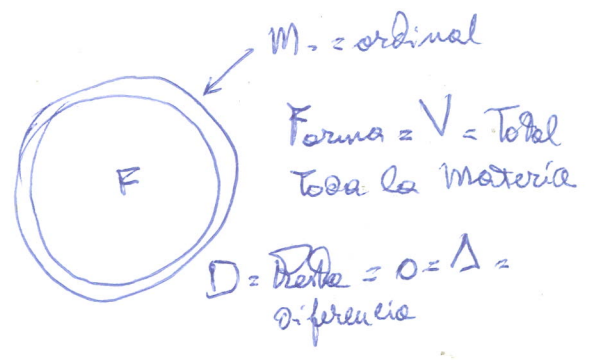 M. = ordinal
F
Forma = V = Total
Toda la Materia
D = Resta = 0 = Δ =
Diferencia